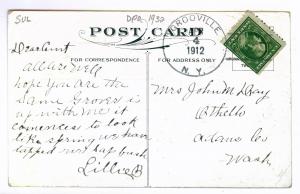 SUL
DPO-1932
POST CARD
GROOVILLE
4
1912
N.Y.
FOR CORRESPONDENCE
FOR ADDRESS ONLY
Dear Aunt
All are well
hope you are the
same Grover is
up with me it
comences to look
like spring we have
tapped our bush
Lillie B
Mrs John M Day
Othello
Adams Co
Wash